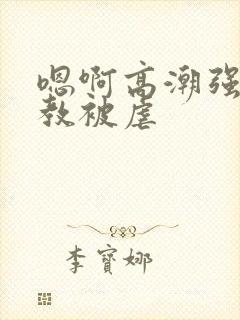 嗯啊高潮强
教被虐
李寳娜